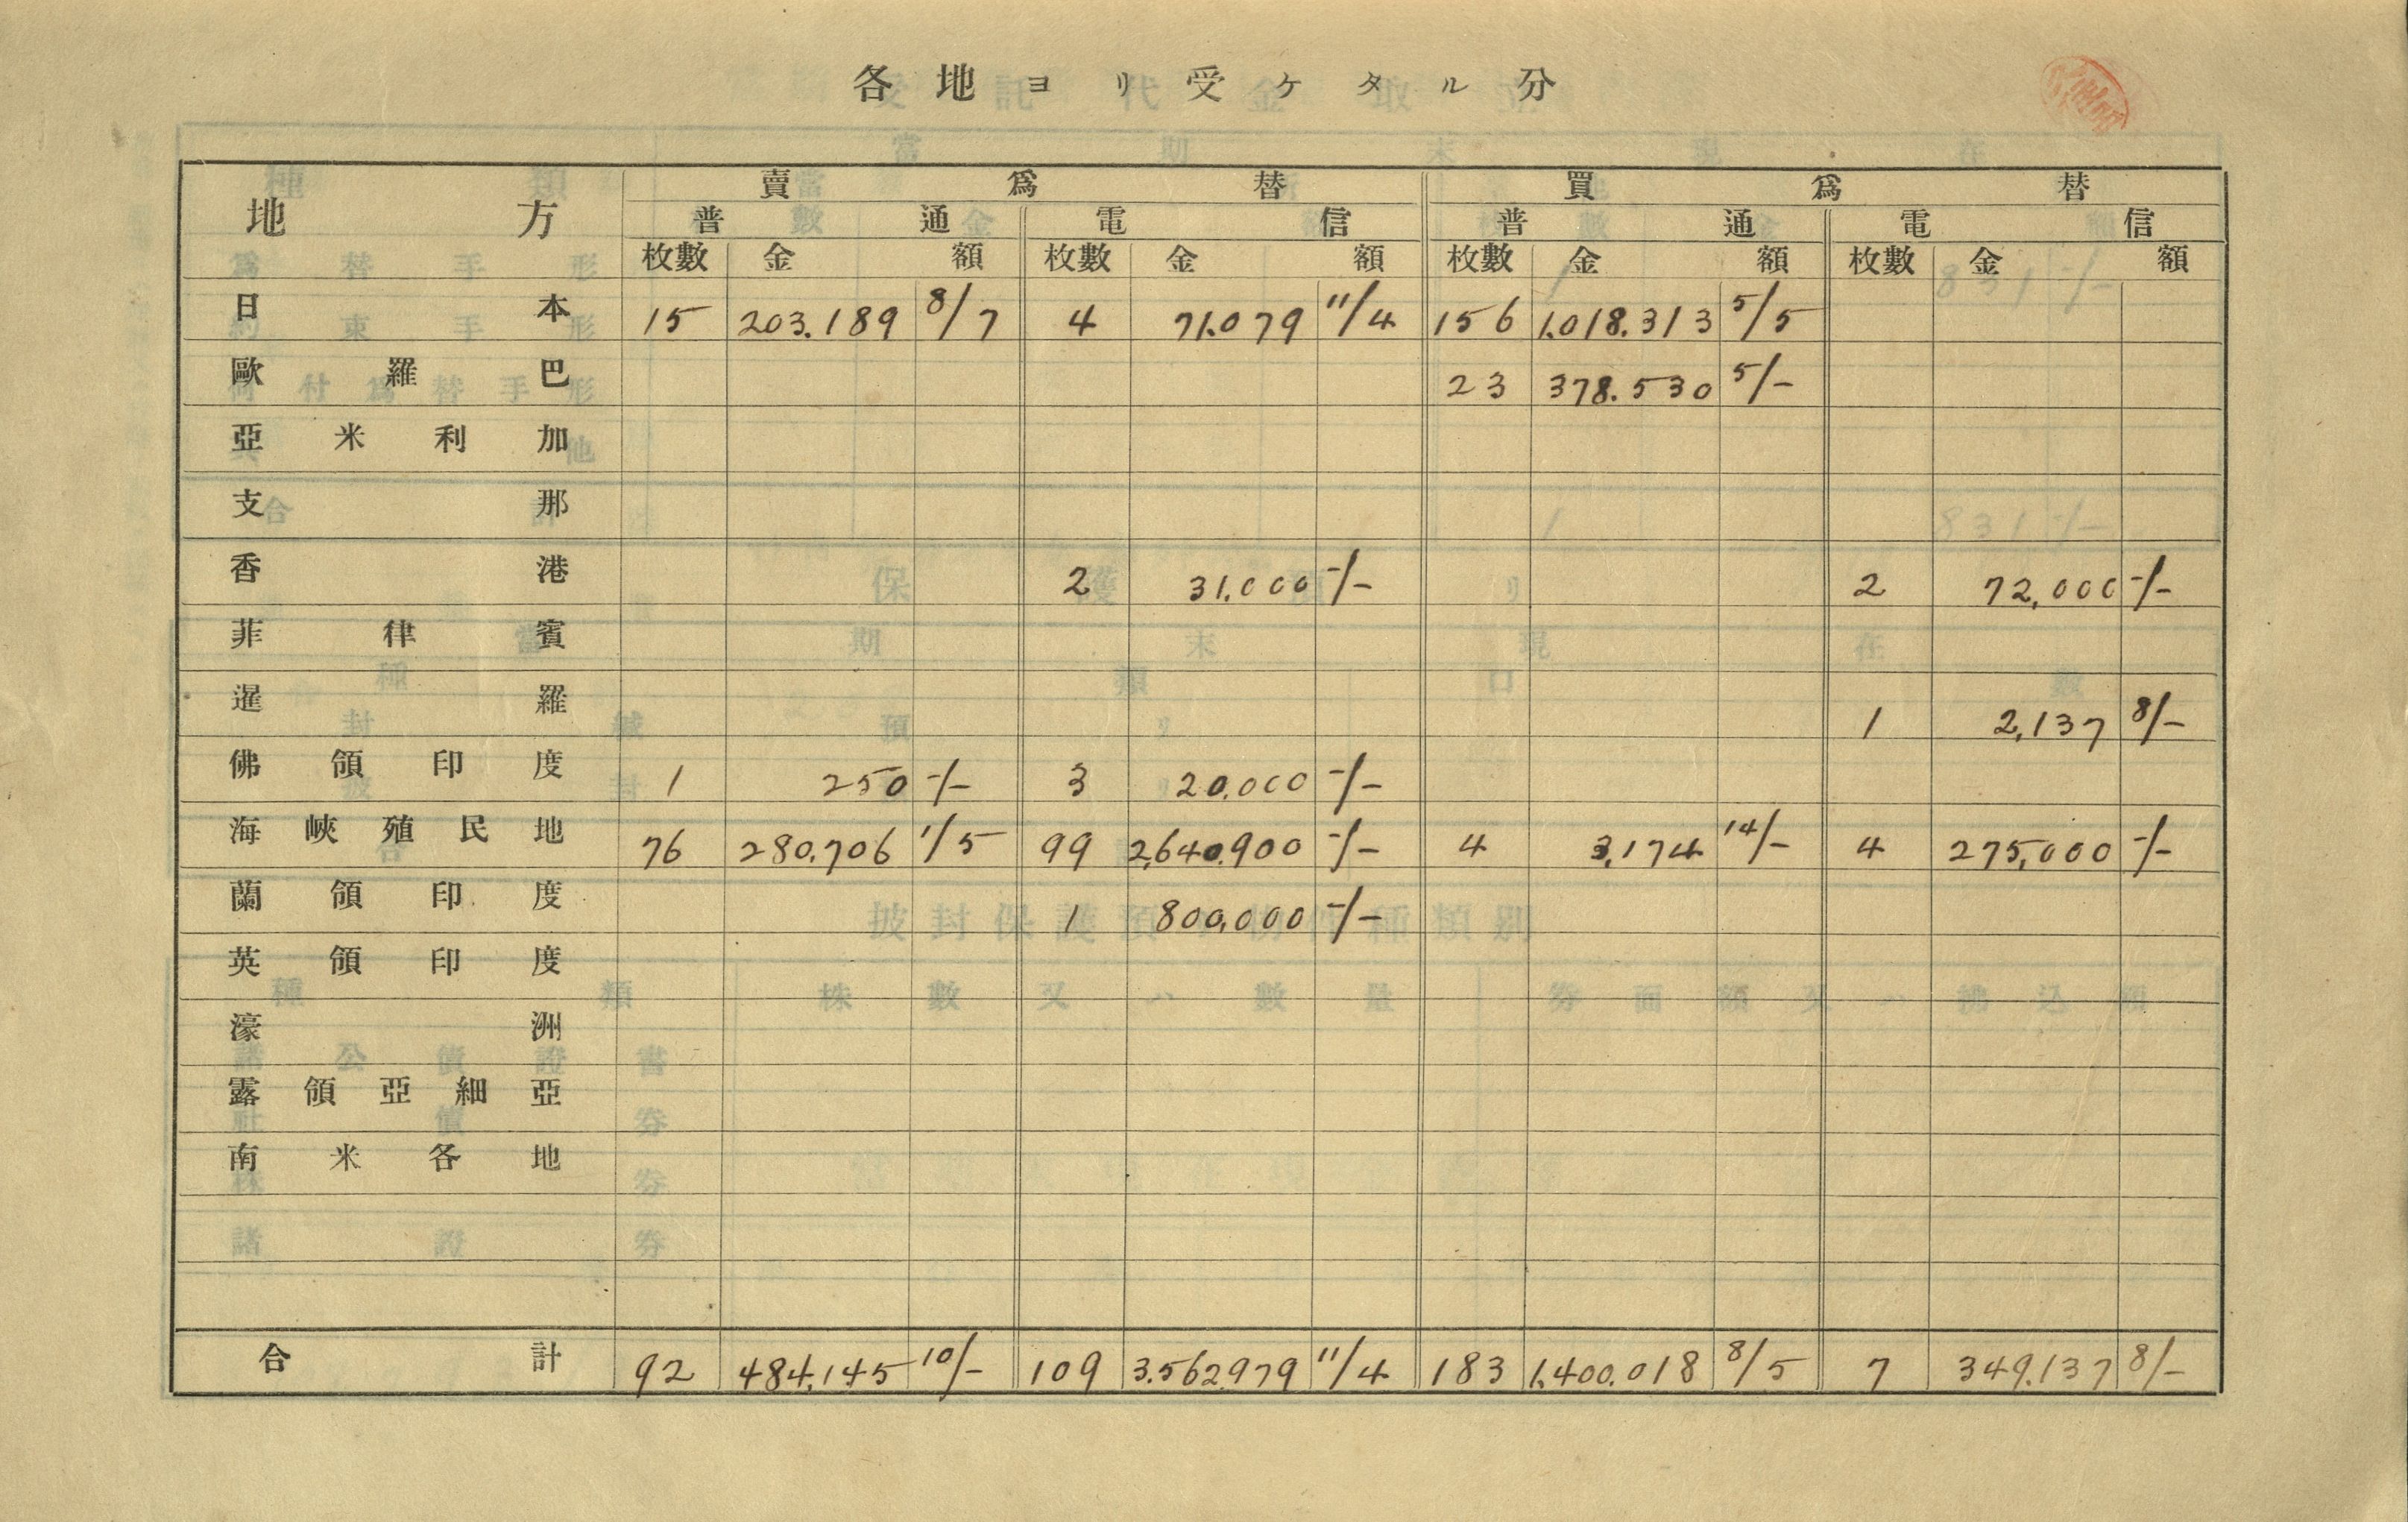 各地ヨリ受ケタル分
地方 賣爲替 買爲替
普通 電信 普通 電信
枚數 金額 枚數 金額 枚數 金額 枚數 金額
日本 15 203.189 8/7 4 71.079 11/4 156 1.018.313 5/5
歐羅巴 23 378.530 5/-
亞米利加
支那
香港 2 31.000 -/- 2 72,000 -/-
菲律賓
暹羅 1 2,137 8/-
佛領印度 1 250 -/- 3 20.000 -/-
海峽殖民地 76 280.706 1/5 99 2,640.900 -/- 4 3,174 14/- 4 275,000 -/-
蘭領印度 1 800,000 -/-
英領印度
濠洲
露領亞細亞
南米各地
合計 92 484,145 10/- 109 3.562.979 11/4 183 1,400.018 8/5 7 349.137 8/-